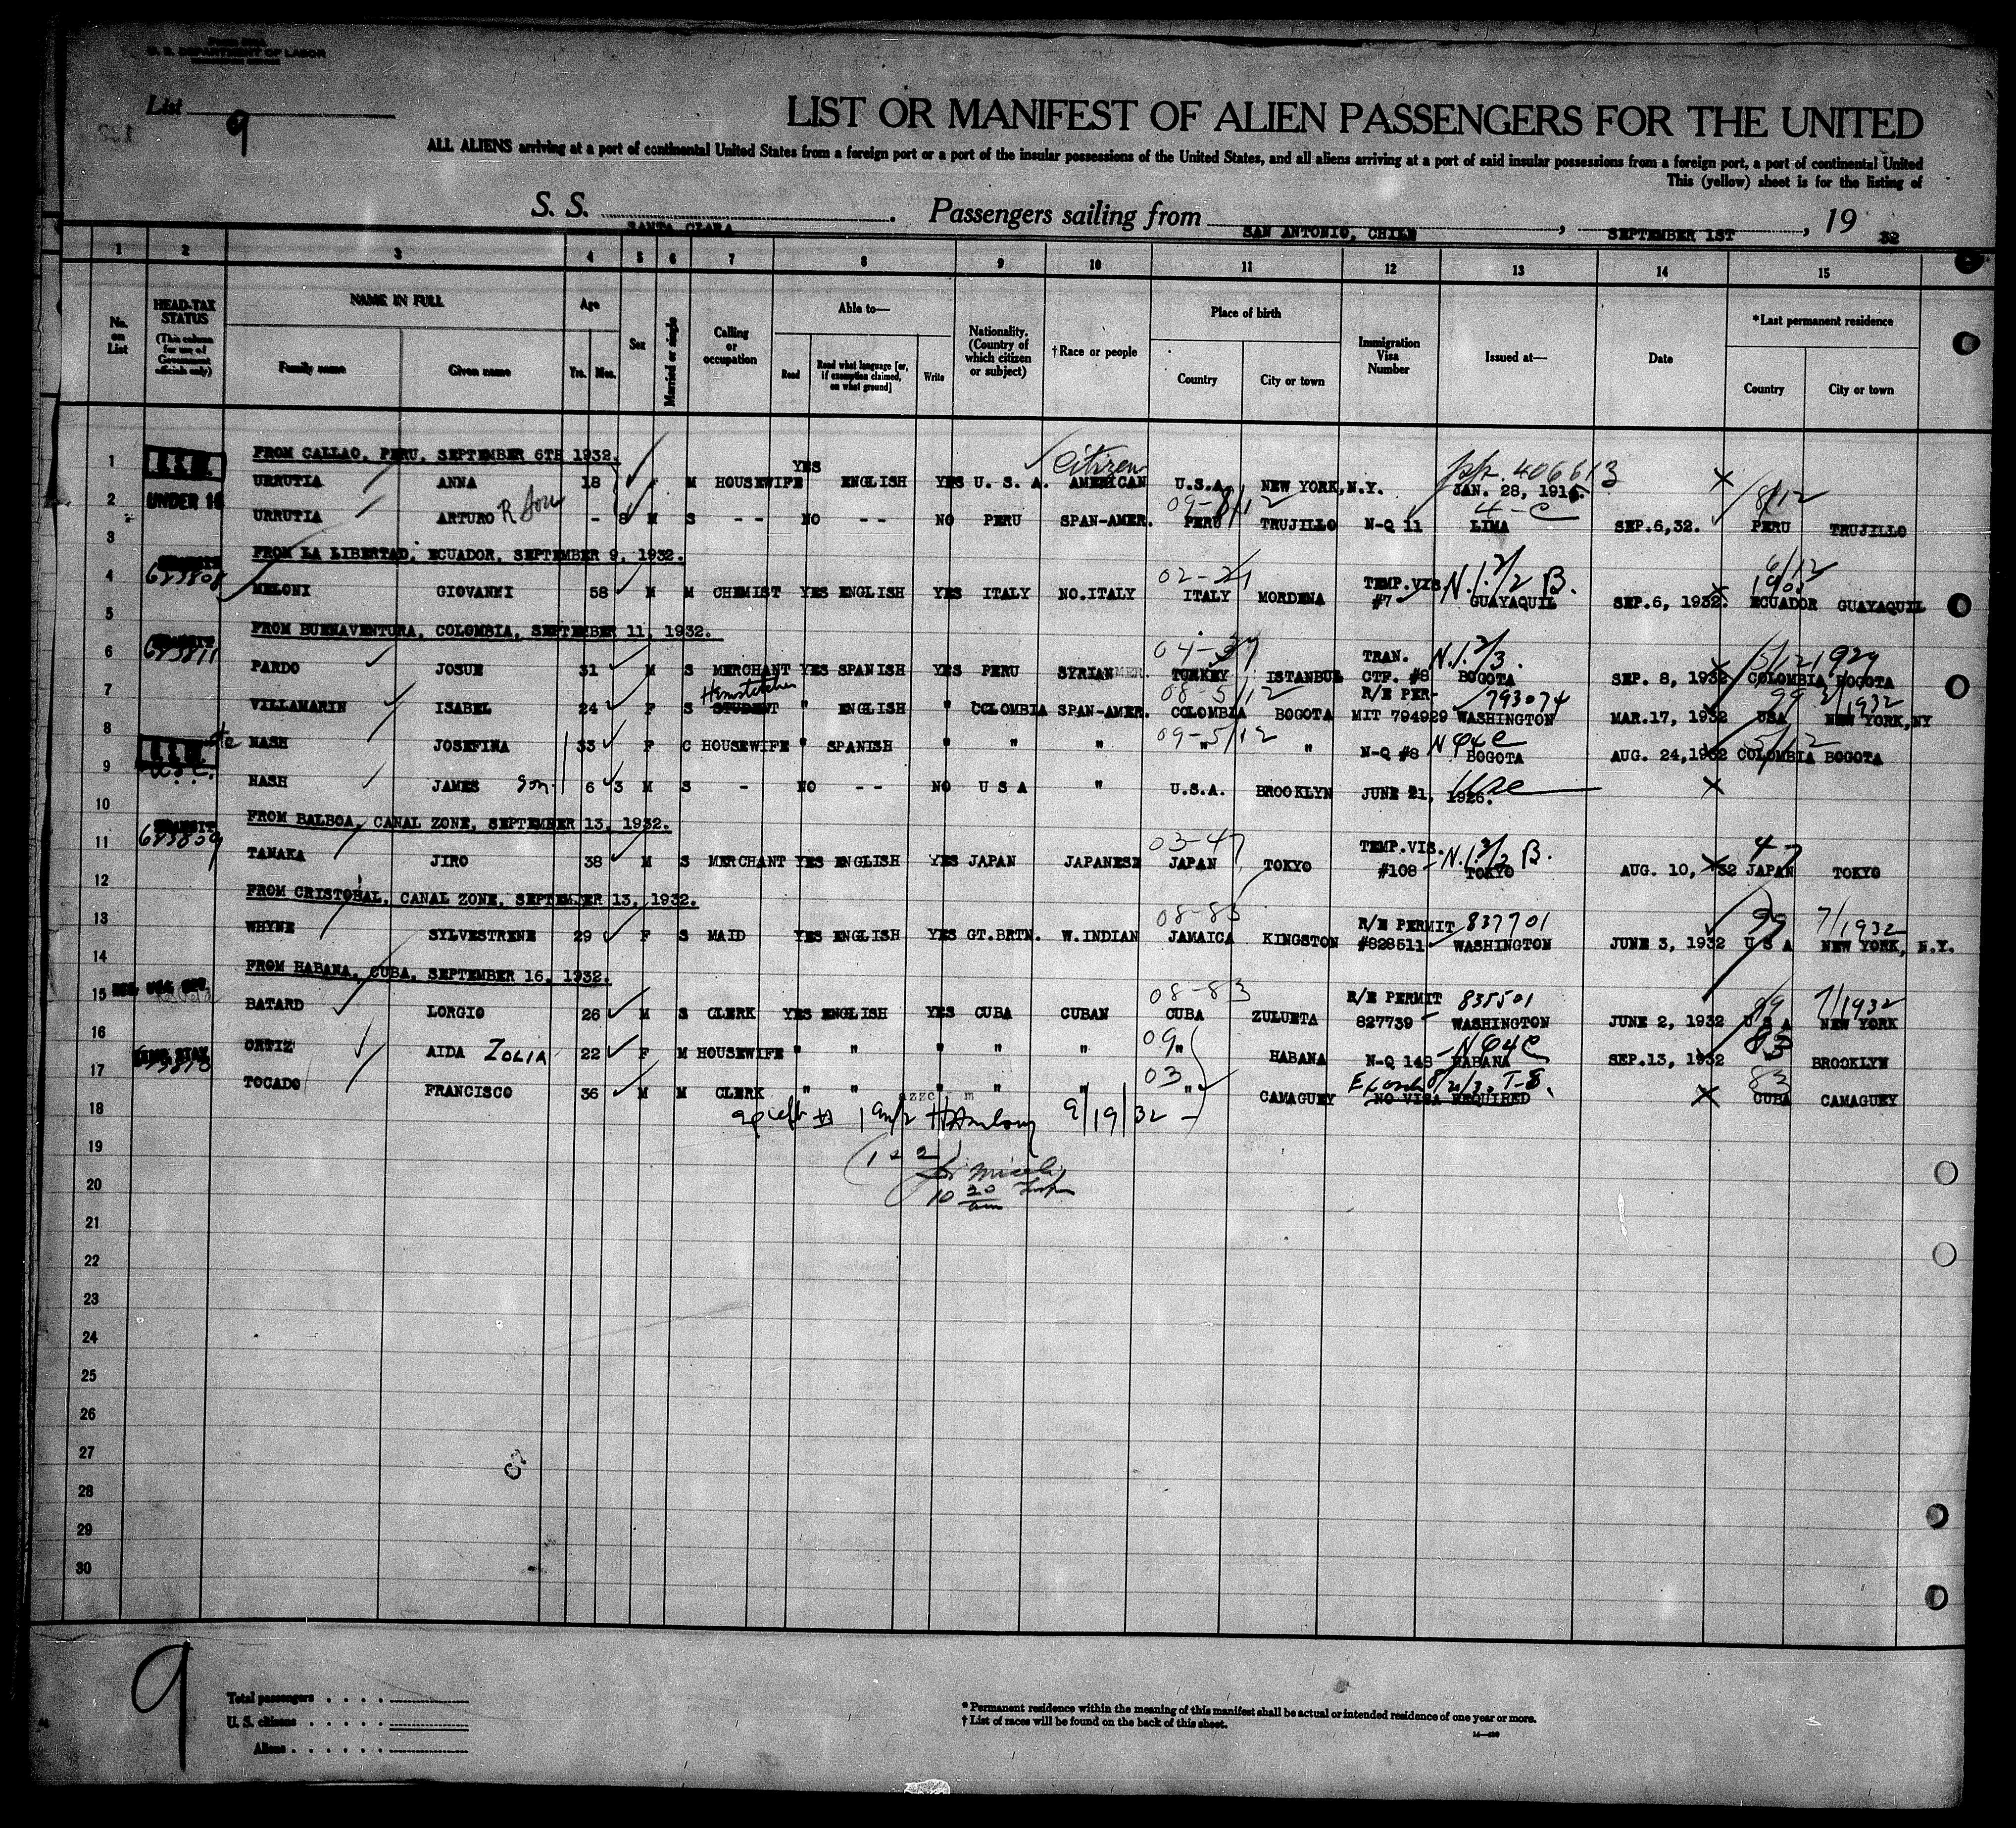 U. S. DEPARTMENT OF LABOR
List 9
LIST OR MANIFEST OF ALIEN PASSENGERS FOR THE UNITED
ALL ALIENS arriving at a port of continental United States from a foreign port or a port of the insular possessions of the United States, and all aliens arriving at a port of said insular possessions from a foreign port, a port of continental United
This (yellow) sheet is for the listing of
S. S. SANTA CLARA. Passengers sailing from SAN ANTONIO, CHILE, SEPTEMBER 1ST, 19 32
1 2 3 4 5 6 7 8 9 10 11 12 13 14 15
No. on List
HEAD-TAX STATUS (This column for use of Government officials only)
NAME IN FULL
Family name Given name
Age
Yrs. Mos.
Sex
Married or single
Calling or occupation
Able to—
Read Read what language [or, if exemption claimed, on what ground] Write
Nationality. (Country of which citizen or subject)
†Race or people
Place of birth
Country City or town
Immigration Visa Number
Issued at—
Date
*Last permanent residence
Country City or town
FROM CALLAO, PERU, SEPTEMBER 6TH 1932.
1 URRUTIA ANNA 18 F M HOUSEWIFE YES ENGLISH YES U. S. A. AMERICAN Citizen U.S.A. NEW YORK, N.Y. pp. 406613 JAN. 28, 1915
2 UNDER 16 URRUTIA ARTURO R Son - 8 M S - - NO - - NO PERU SPAN-AMER. 09-8/12 PERU TRUJILLO N-Q 11 4-C LIMA SEP.6,32. 8/12 PERU TRUJILLO
3 FROM LA LIBERTAD, ECUADOR, SEPTEMBER 9, 1932.
4 623808 MELONI GIOVANNI 58 M M CHEMIST YES ENGLISH YES ITALY NO.ITALY 02-21 ITALY MORDENA TEMP.VIS. #7 GUAYAQUIL SEP.6, 1932. 6/12 1903 ECUADOR GUAYAQUIL
5 FROM BUENAVENTURA, COLOMBIA, SEPTEMBER 11, 1932.
6 623811 PARDO JOSUE 31 M S MERCHANT YES SPANISH YES PERU SYRIAN 04-37 TURKEY ISTANBUL TRAN. CTF. #8 BOGOTA SEP. 8, 1932 5/12 1929 COLOMBIA BOGOTA
7 VILLAMARIN ISABEL 24 F S STUDENT Hemstitcher " ENGLISH " COLOMBIA SPAN-AMER. 08-5/12 COLOMBIA BOGOTA R/E PERMIT 794929 793074 WASHINGTON MAR.17, 1932 99 2/1932 USA NEW YORK,NY
8 NASH JOSEFINA 33 F C HOUSEWIFE " SPANISH " " " 09-5/12 " " N-Q #8 N Q4C BOGOTA AUG. 24,1932 5/12 COLOMBIA BOGOTA
9 U.S.C. NASH JAMES Son 6 3 M S - NO - - NO U S A " U.S.A. BROOKLYN JUNE 21, 1926.
10 FROM BALBOA, CANAL ZONE, SEPTEMBER 13, 1932.
11 623839 TANAKA JIRO 38 M S MERCHANT YES ENGLISH YES JAPAN JAPANESE 03-47 JAPAN TOKYO TEMP.VIS. #108 TOKYO AUG. 10, 32 47 JAPAN TOKYO
12 FROM CRISTOBAL, CANAL ZONE, SEPTEMBER 13, 1932.
13 WHYNE SYLVESTRENE 29 F S MAID YES ENGLISH YES GT.BRTN. W.INDIAN 08-83 JAMAICA KINGSTON R/E PERMIT #828511 837701 WASHINGTON JUNE 3, 1932 99 7/1932 U S A NEW YORK, N.Y.
14 FROM HABANA, CUBA, SEPTEMBER 16, 1932.
15 BATARD LORGIO 26 M S CLERK YES ENGLISH YES CUBA CUBAN 08-83 CUBA ZULUETA R/E PERMIT 827739 835501 WASHINGTON JUNE 2, 1932 99 7/1932 U S A NEW YORK
16 ORTIZ AIDA ZOLIA 22 F M HOUSEWIFE " " " " " 09 " HABANA N-Q 148 N Q4C HABANA SEP.13, 1932 83 " BROOKLYN
17 TEMP. STAY TOCADO FRANCISCO 36 M M CLERK " " " " " 03 " CAMAGUEY NO VISA REQUIRED 83 CUBA CAMAGUEY
18 9/19/32
19 (1 + 2)
20 10 20 am
21
22
23
24
25
26
27
28
29
30
9
Total passengers
U. S. citizens
Aliens
* Permanent residence within the meaning of this manifest shall be actual or intended residence of one year or more.
† List of races will be found on the back of this sheet.